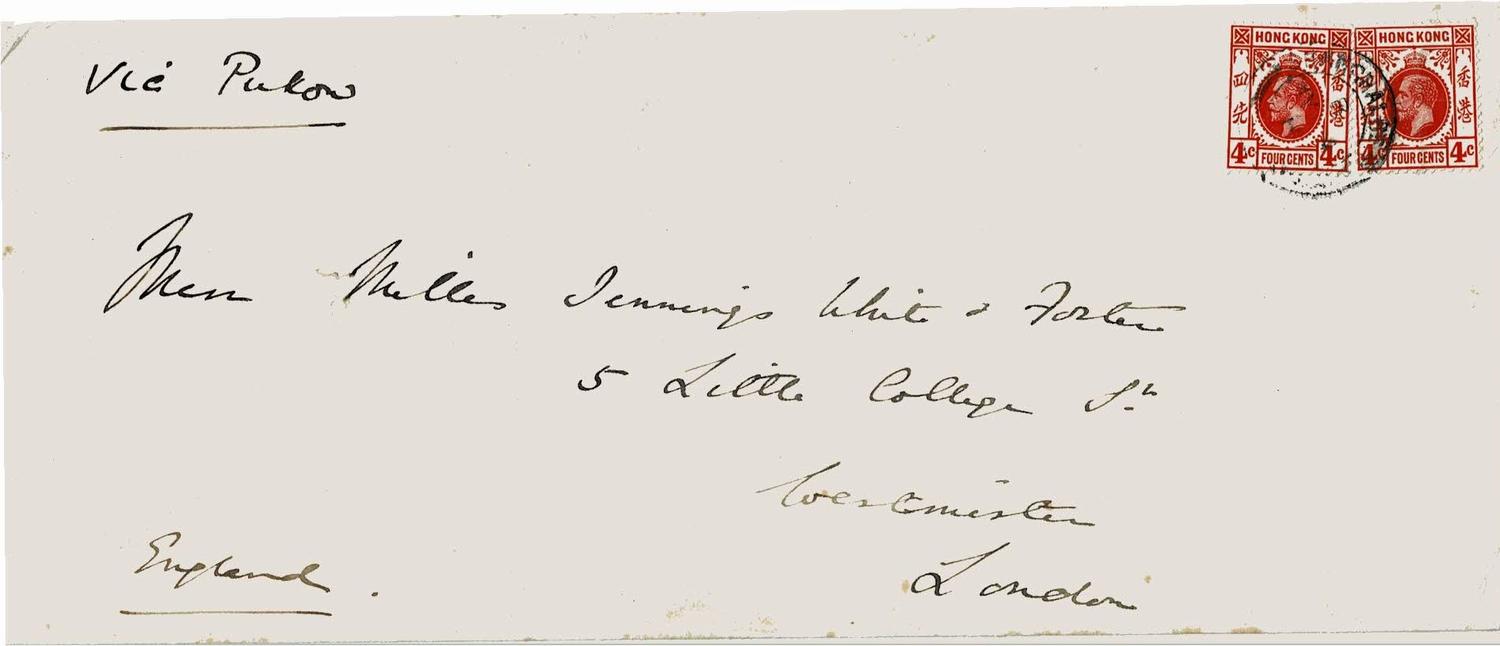 Via Pukow
HONG KONG
四先
香港
4c FOUR CENTS 4c
HONG KONG
香港
4c FOUR CENTS 4c
Messrs Milles Jennings White & Foster
5 Little College St.
Westminster
London
England.